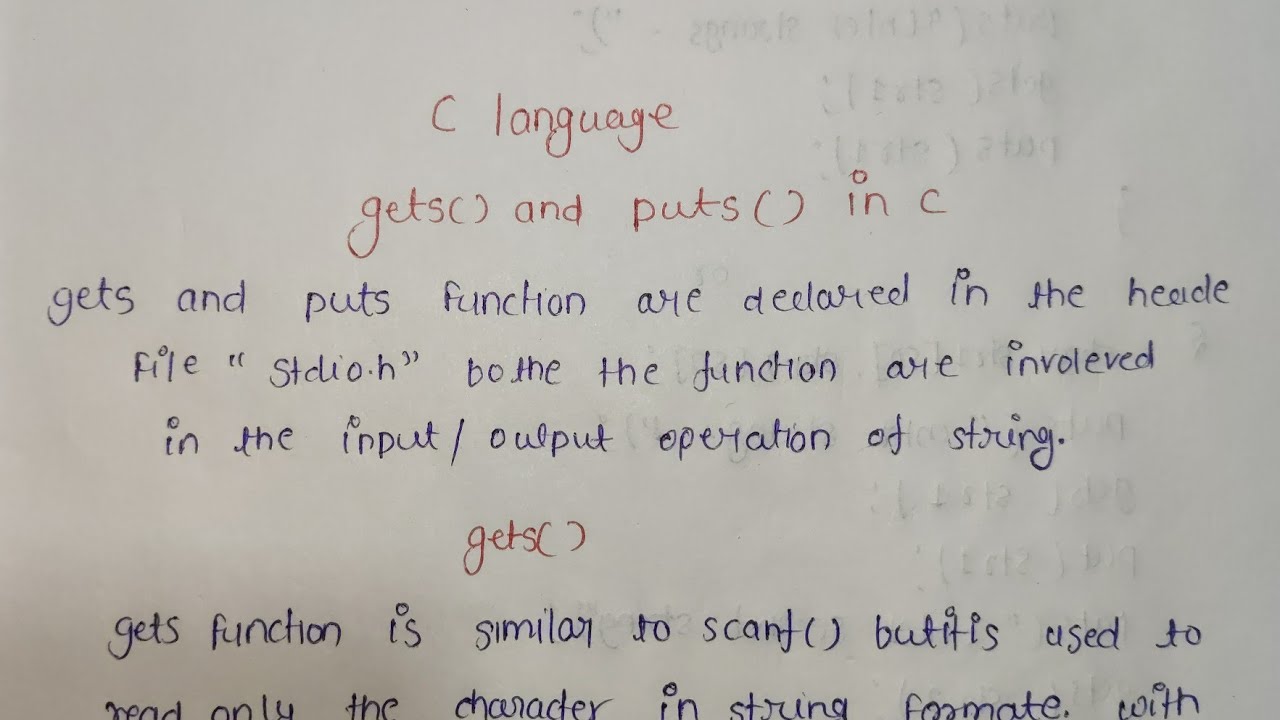 C language
gets() and puts() in C
gets and puts function are declared in the heade
file "stdio.h" bothe the function are involeved
in the input/output operation of string.
gets()
gets function is similar to scanf() but it is used to
read only the character in string formate. with